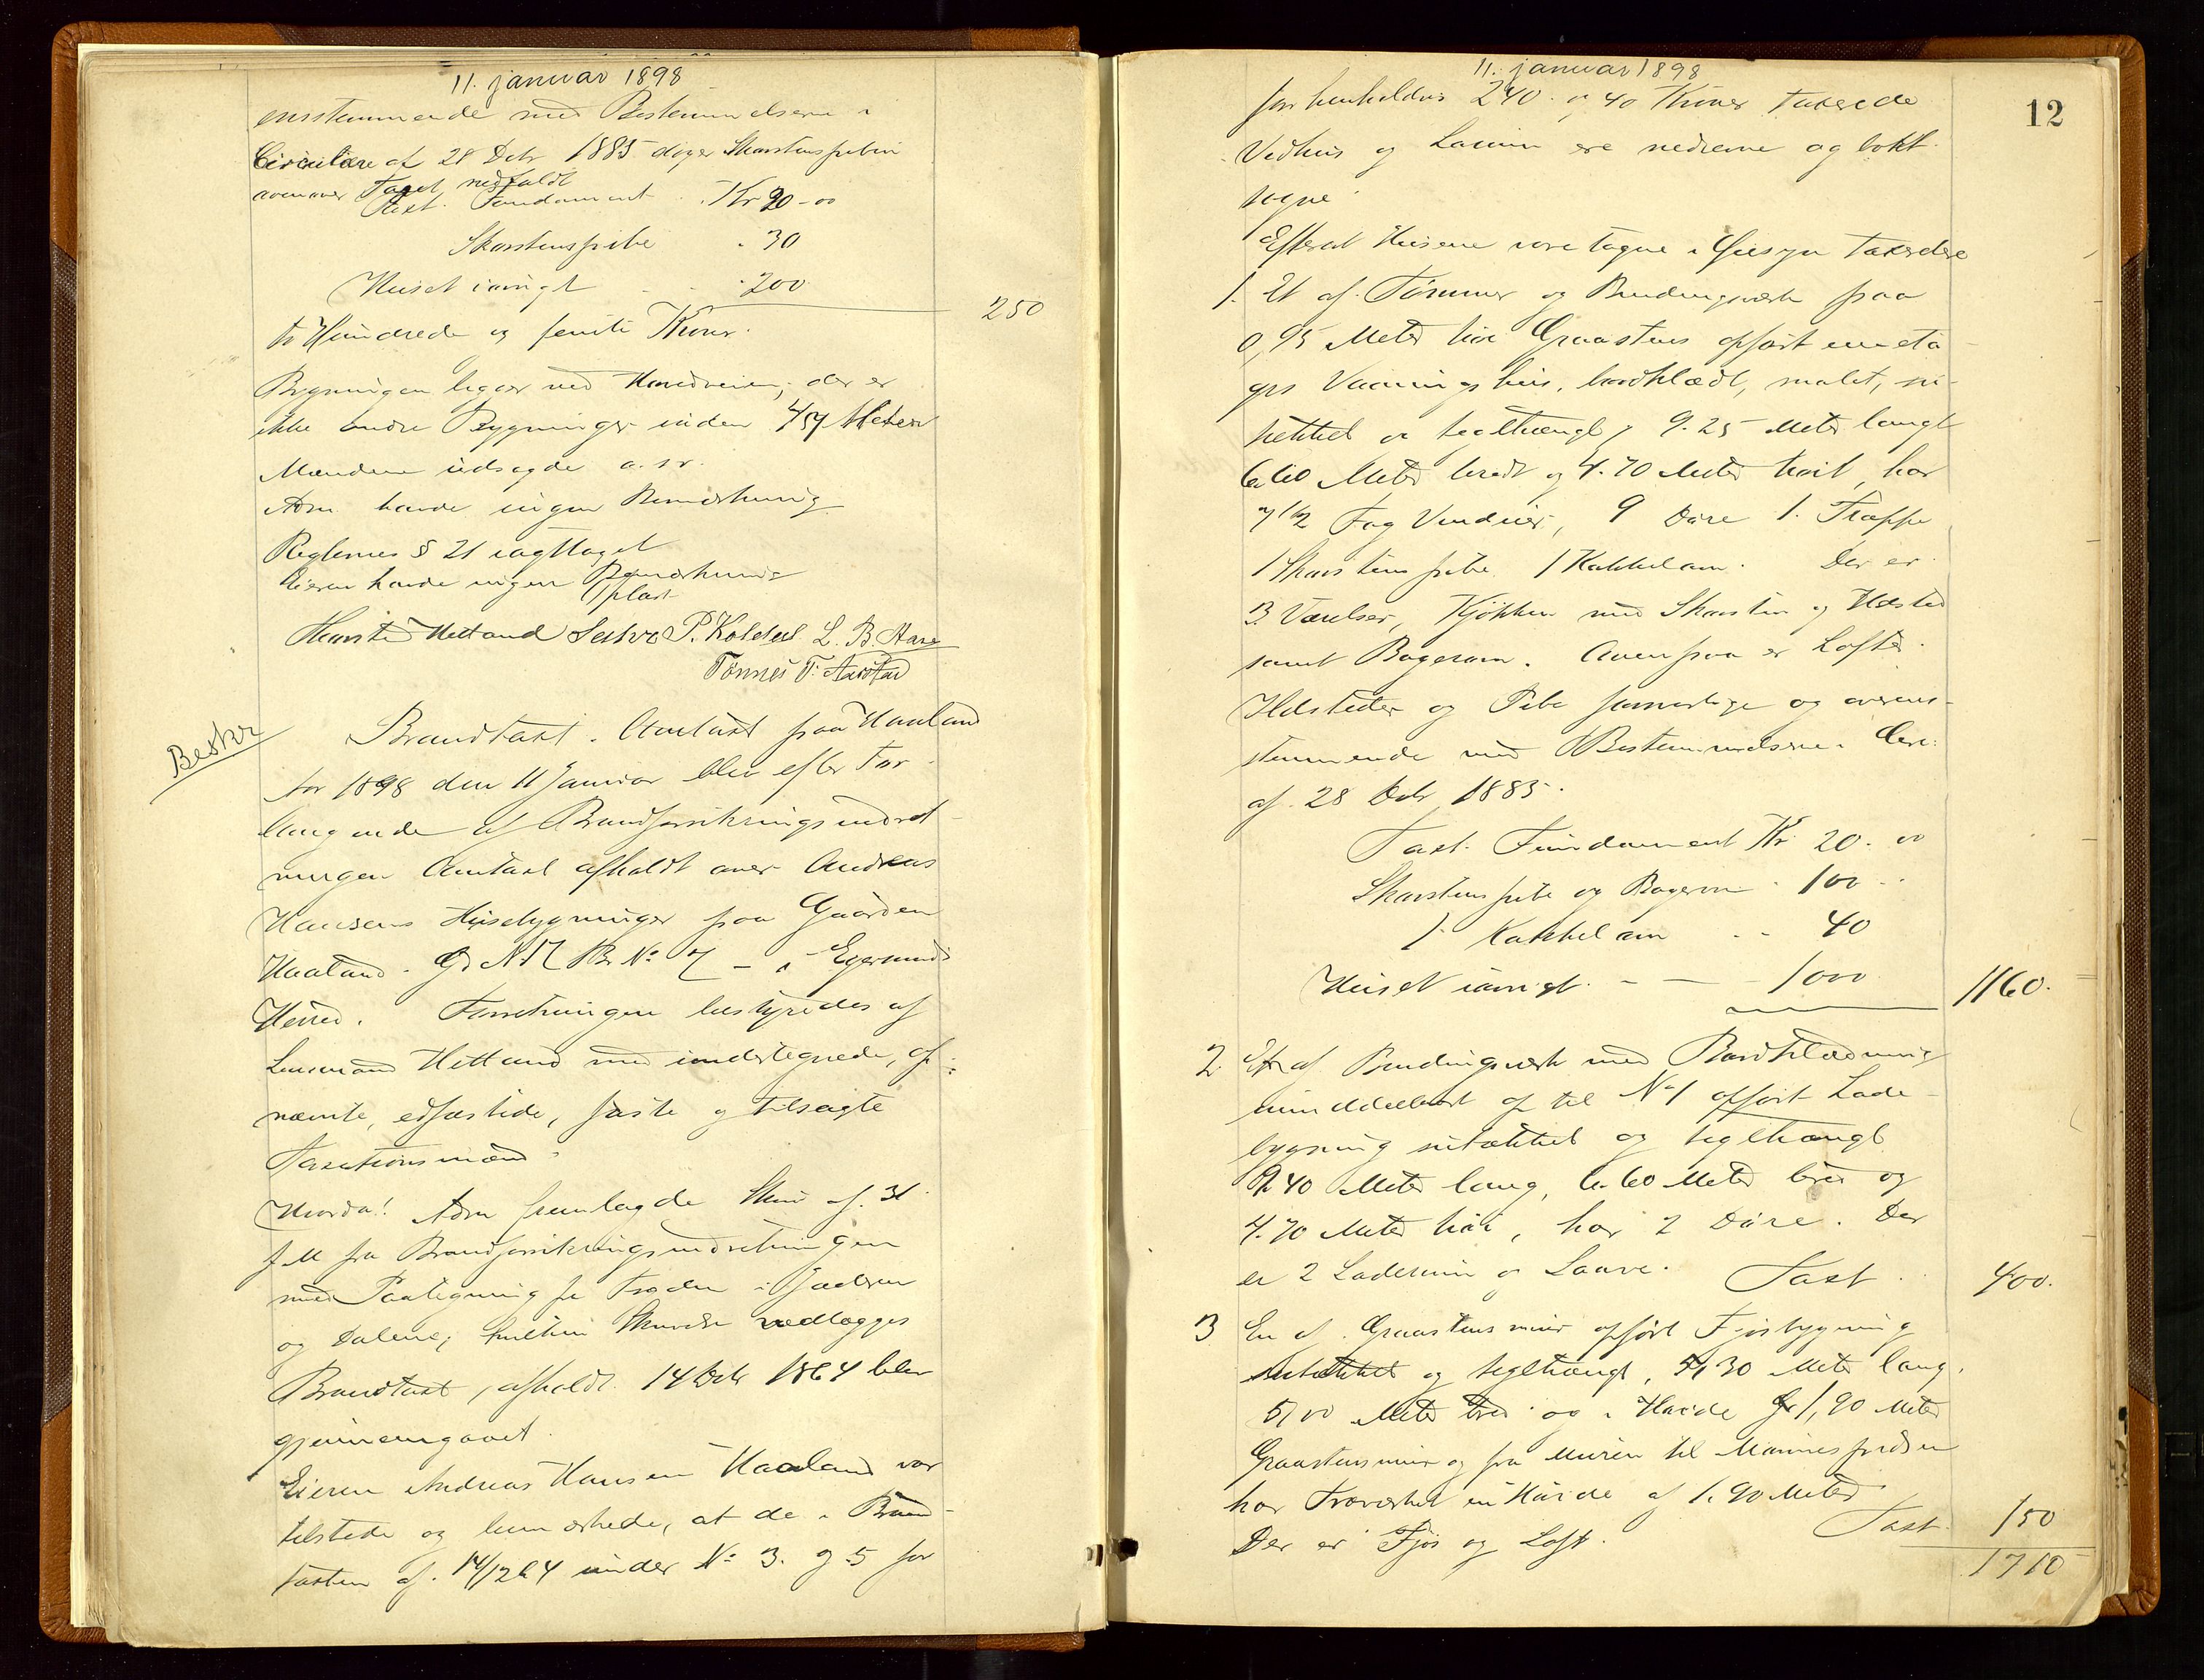 11. januar 1898
ensstemmende med Bestemmelserne i
Circulære af 28 Debr 1885 diger Skorstenspiben
ovenover Taget nedfaldt
Taxt. Fundament Kr 20-00
Skorstenspibe " 30
Huset iøvrigt - - " 200
250
to Hundrede og femti Kroner.
Bygningen ligger ved Hovedveien, der er
ikke andre Bygninger inden 457 Meter
Mændene udsagde a. sv.
Adm havde ingen Bemærkning
Reglemes § 21 iagttaget
Eieren havde ingen Bemærkning
Oplæst
Hetland P. Koldal L. B. Aase
Tønnes T. Aarstad
Beskr
Brandtaxt. Omtaxt paa Haaland
Aar 1898 den 11 Januar blev efter For-
langende af Brandforsikringsindret-
ningen Omtaxt afholdt over Andreas
Hansens Husebygninger paa Gaarden
Haaland. G. N. 17 Br. No 7 - i Egersunds
Herred. Forretningen bestyredes af
Lensmand Hetland med undertegnede, op-
nævnte, edfæstede, faste og tilsagte
Taxationsmænd.
Hvorda! Adm fremlagde Skriv af 31
f. M fra Brandforsikringsindretningen
med Paategning fra Fogden i Jæderen
og Dalene, hvilken Skrivelse vedlægges
Brandtaxt, afholdt 14 Debr 1864 blev
gjennemgaaet.
Eieren Andreas Hansen Haaland var
tilstede og bemærkede, at de i Brand-
taxten af 14/12 64 under No 3. og 5 for
11. januar 1898
12
for henholdsvis 240. og 40 Kroner taxerede
Vedhus og ere nedrevne og bort-
tagne.
Efterat Husene vare tagne i Øiesyn taxeredes
1. Et af Tømmer og Bindingsværk paa
0,95 Meter høi Graastens opført eneta-
ges Vaaningshus, bordklædt, malet, ni-
tækket og teglhængt, 9.25 Meter langt
6.60 Meter bredt og 4.70 Meter høit, har
7 1/2 Fag Vinduer, 9 Døre 1. Trappe
1 Skorstenspibe 1 Kakkelovn. Der er
3 Værelser, Kjøkken med Skorsten og Ildsted
samt Bagerovn. Ovenpaa er Lofte.
Ildsteder og Pibe forsvarlige og overens-
stemmende med Bestemmelserne i Circ.
af 28 Debr 1885.
Taxt. Fundament Kr 20. 00
Skorstenspibe og Bagerovn " 100 "
1 Kakkelovn - - 40
Huset iøvrigt. - - - 1000
1160.
2 En af Bindingsværk med Bordklædning
umiddelbart op til No 1 opført Lade-
bygning nitækket og teglhængt
9.40 Meter lang, 6.60 Meter bred og
4.70 Meter høi, har 2 Døre. Der
er 2 Laderum og Laave. Taxt.
400.
3 En af Graastensmur opført Fjøsbygning
nitækket og teglhængt, 5,30 Meter lang.
5,00 Meter bred og i Høide 1,90 Meter
Graastensmur og fra Muren til Mønnespidsen
har Træværket en Høide af 1.90 Meter
Der er Fjøs og Loft. Taxt. 150
1710